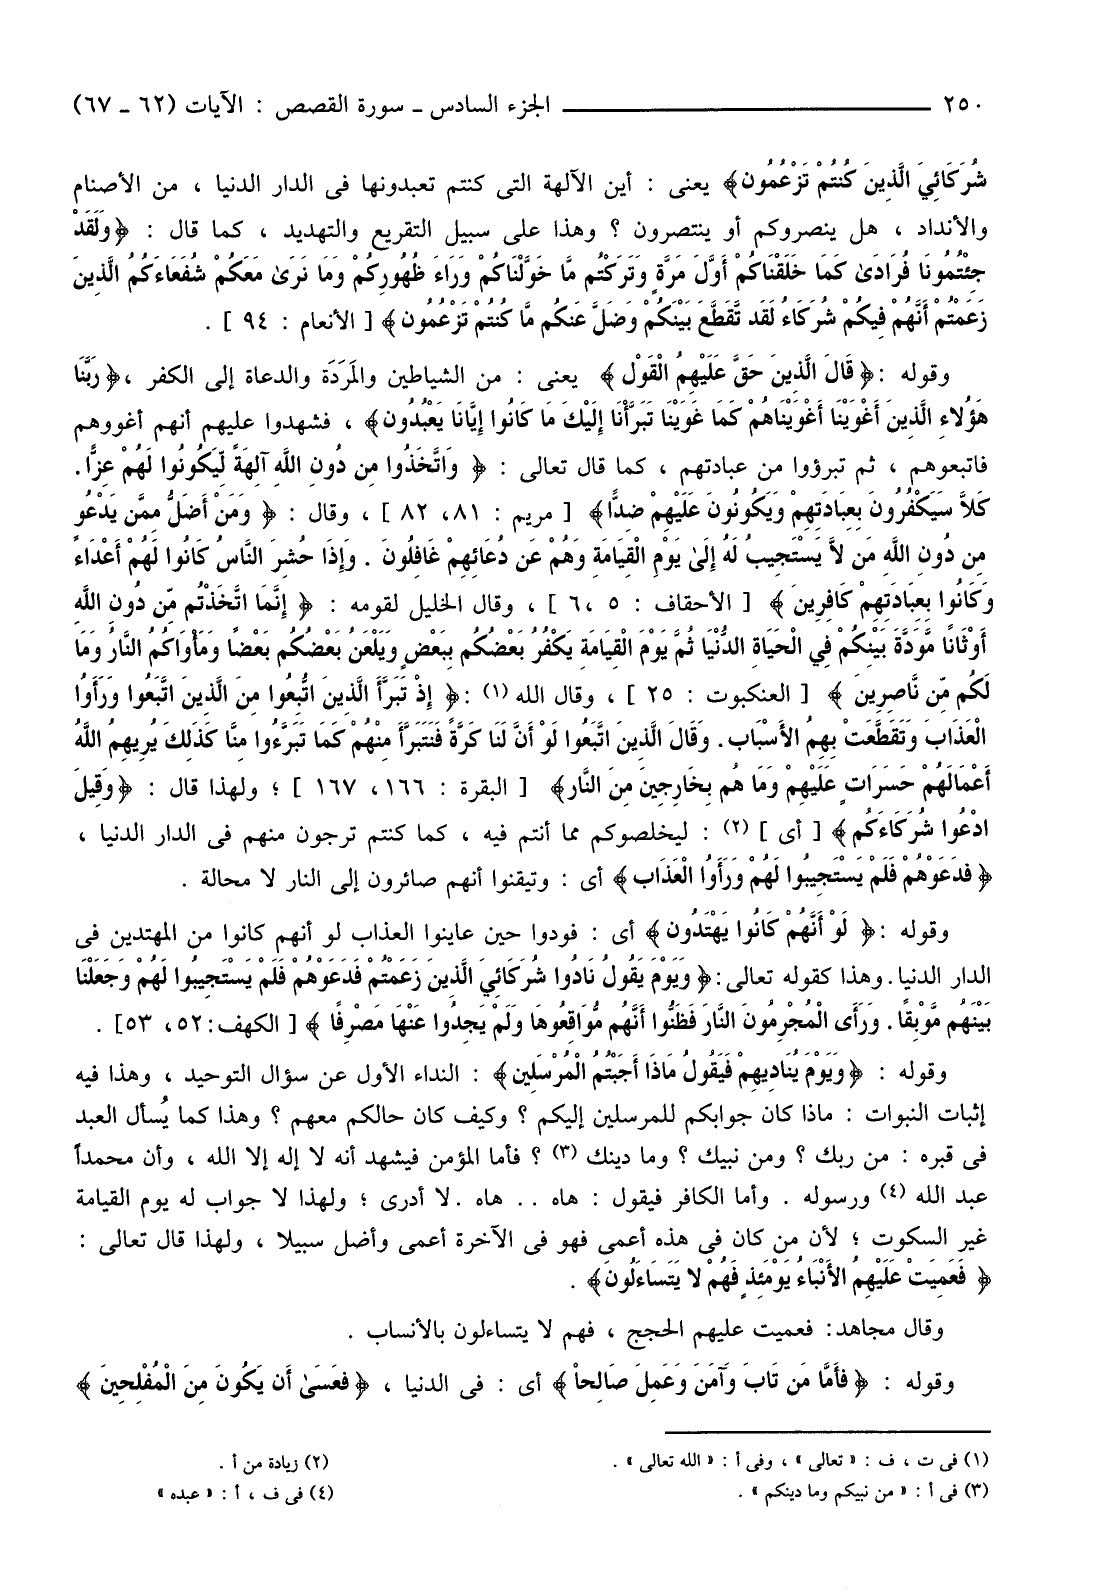 ٢٥٠ ــــــــــــــــــــ الجزء السادس ـ سورة القصص : الآيات (٦٢ ـ ٦٧)
شُرَكَائِيَ الَّذِينَ كُنتُمْ تَزْعُمُونَ﴾ يعنى : أين الآلهة التى كنتم تعبدونها فى الدار الدنيا ، من الأصنام
والأنداد ، هل ينصروكم أو ينتصرون ؟ وهذا على سبيل التقريع والتهديد ، كما قال : ﴿وَلَقَدْ
جِئْتُمُونَا فُرَادَىٰ كَمَا خَلَقْنَاكُمْ أَوَّلَ مَرَّةٍ وَتَرَكْتُم مَّا خَوَّلْنَاكُمْ وَرَاءَ ظُهُورِكُمْ وَمَا نَرَىٰ مَعَكُمْ شُفَعَاءَكُمُ الَّذِينَ
زَعَمْتُمْ أَنَّهُمْ فِيكُمْ شُرَكَاءُ لَقَد تَّقَطَّعَ بَيْنَكُمْ وَضَلَّ عَنكُم مَّا كُنتُمْ تَزْعُمُونَ﴾ [ الأنعام : ٩٤ ] .
وقوله :﴿ قَالَ الَّذِينَ حَقَّ عَلَيْهِمُ الْقَوْلُ ﴾ يعنى : من الشياطين والمَرَدَة والدعاة إلى الكفر ،﴿ رَبَّنَا
هَؤُلاءِ الَّذِينَ أَغْوَيْنَا أَغْوَيْنَاهُمْ كَمَا غَوَيْنَا تَبَرَّأْنَا إِلَيْكَ مَا كَانُوا إِيَّانَا يَعْبُدُونَ﴾ ، فشهدوا عليهم أنهم أغووهم
فاتبعوهم ، ثم تبرؤوا من عبادتهم ، كما قال تعالى : ﴿ وَاتَّخَذُوا مِن دُونِ اللَّهِ آلِهَةً لِّيَكُونُوا لَهُمْ عِزًّا.
كَلاَّ سَيَكْفُرُونَ بِعِبَادَتِهِمْ وَيَكُونُونَ عَلَيْهِمْ ضِدًّا﴾ [ مريم : ٨١، ٨٢ ] ، وقال : ﴿ وَمَنْ أَضَلُّ مِمَّن يَدْعُو
مِن دُونِ اللَّهِ مَن لاَّ يَسْتَجِيبُ لَهُ إِلَىٰ يَوْمِ الْقِيَامَةِ وَهُمْ عَن دُعَائِهِمْ غَافِلُونَ . وَإِذَا حُشِرَ النَّاسُ كَانُوا لَهُمْ أَعْدَاءً
وَكَانُوا بِعِبَادَتِهِمْ كَافِرِينَ ﴾ [ الأحقاف : ٥ ،٦ ] ، وقال الخليل لقومه : ﴿ إِنَّمَا اتَّخَذْتُم مِّن دُونِ اللَّهِ
أَوْثَانًا مَّوَدَّةَ بَيْنِكُمْ فِي الْحَيَاةِ الدُّنْيَا ثُمَّ يَوْمَ الْقِيَامَةِ يَكْفُرُ بَعْضُكُم بِبَعْضٍ وَيَلْعَنُ بَعْضُكُم بَعْضًا وَمَأْوَاكُمُ النَّارُ وَمَا
لَكُم مِّن نَّاصِرِينَ ﴾ [ العنكبوت : ٢٥ ] ، وقال الله (١) :﴿ إِذْ تَبَرَّأَ الَّذِينَ اتُّبِعُوا مِنَ الَّذِينَ اتَّبَعُوا وَرَأَوُا
الْعَذَابَ وَتَقَطَّعَتْ بِهِمُ الأَسْبَابُ. وَقَالَ الَّذِينَ اتَّبَعُوا لَوْ أَنَّ لَنَا كَرَّةً فَنَتَبَرَّأَ مِنْهُمْ كَمَا تَبَرَّءُوا مِنَّا كَذَلِكَ يُرِيهِمُ اللَّهُ
أَعْمَالَهُمْ حَسَرَاتٍ عَلَيْهِمْ وَمَا هُم بِخَارِجِينَ مِنَ النَّارِ﴾ [ البقرة : ١٦٦، ١٦٧ ] ؛ ولهذا قال : ﴿وَقِيلَ
ادْعُوا شُرَكَاءَكُمْ﴾ [ أى ] (٢) : ليخلصوكم مما أنتم فيه ، كما كنتم ترجون منهم فى الدار الدنيا ،
﴿ فَدَعَوْهُمْ فَلَمْ يَسْتَجِيبُوا لَهُمْ وَرَأَوُا الْعَذَابَ﴾ أى : وتيقنوا أنهم صائرون إلى النار لا محالة .
وقوله :﴿ لَوْ أَنَّهُمْ كَانُوا يَهْتَدُونَ﴾ أى : فودوا حين عاينوا العذاب لو أنهم كانوا من المهتدين فى
الدار الدنيا. وهذا كقوله تعالى:﴿ وَيَوْمَ يَقُولُ نَادُوا شُرَكَائِيَ الَّذِينَ زَعَمْتُمْ فَدَعَوْهُمْ فَلَمْ يَسْتَجِيبُوا لَهُمْ وَجَعَلْنَا
بَيْنَهُم مَّوْبِقًا. وَرَأَى الْمُجْرِمُونَ النَّارَ فَظَنُّوا أَنَّهُم مُّوَاقِعُوهَا وَلَمْ يَجِدُوا عَنْهَا مَصْرِفًا ﴾ [ الكهف:٥٢، ٥٣] .
وقوله : ﴿وَيَوْمَ يُنَادِيهِمْ فَيَقُولُ مَاذَا أَجَبْتُمُ الْمُرْسَلِينَ﴾ : النداء الأول عن سؤال التوحيد ، وهذا فيه
إثبات النبوات : ماذا كان جوابكم للمرسلين إليكم ؟ وكيف كان حالكم معهم ؟ وهذا كما يُسأل العبد
فى قبره : من ربك ؟ ومن نبيك ؟ وما دينك (٣) ؟ فأما المؤمن فيشهد أنه لا إله إلا الله ، وأن محمداً
عبد الله (٤) ورسوله . وأما الكافر فيقول : هاه .. هاه .لا أدرى ؛ ولهذا لا جواب له يوم القيامة
غير السكوت ؛ لأن من كان فى هذه أعمى فهو فى الآخرة أعمى وأضل سبيلا ، ولهذا قال تعالى :
﴿ فَعَمِيَتْ عَلَيْهِمُ الأَنْبَاءُ يَوْمَئِذٍ فَهُمْ لا يَتَسَاءَلُونَ﴾ .
وقال مجاهد: فعميت عليهم الحجج ، فهم لا يتساءلون بالأنساب .
وقوله : ﴿ فَأَمَّا مَن تَابَ وَآمَنَ وَعَمِلَ صَالِحاً﴾ أى : فى الدنيا ، ﴿ فَعَسَىٰ أَن يَكُونَ مِنَ الْمُفْلِحِينَ ﴾
(١) فى ت ، ف : « تعالى » ، وفى أ : « الله تعالى » . (٢) زيادة من أ .
(٣) فى أ : « من نبيكم وما دينكم » . (٤) فى ف ، أ : « عبده »